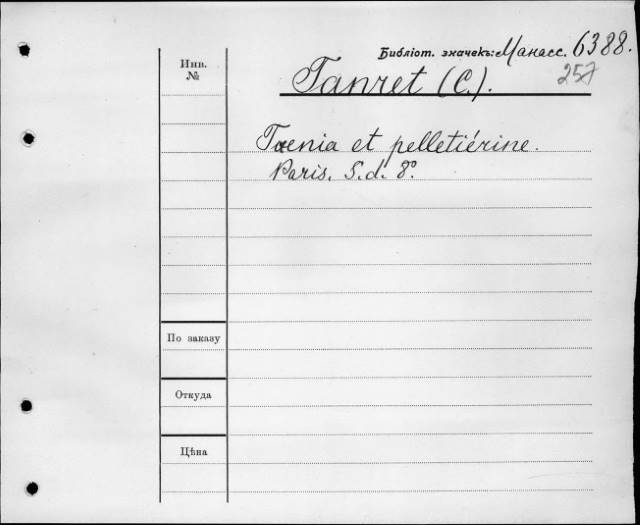 Библіот. значекъ: Манасс. 6388.
257
Инв.
№
Tanret (C.).
Tænia et pelletiérine.
Paris. S.d. 8°.
По заказу
Откуда
Цѣна